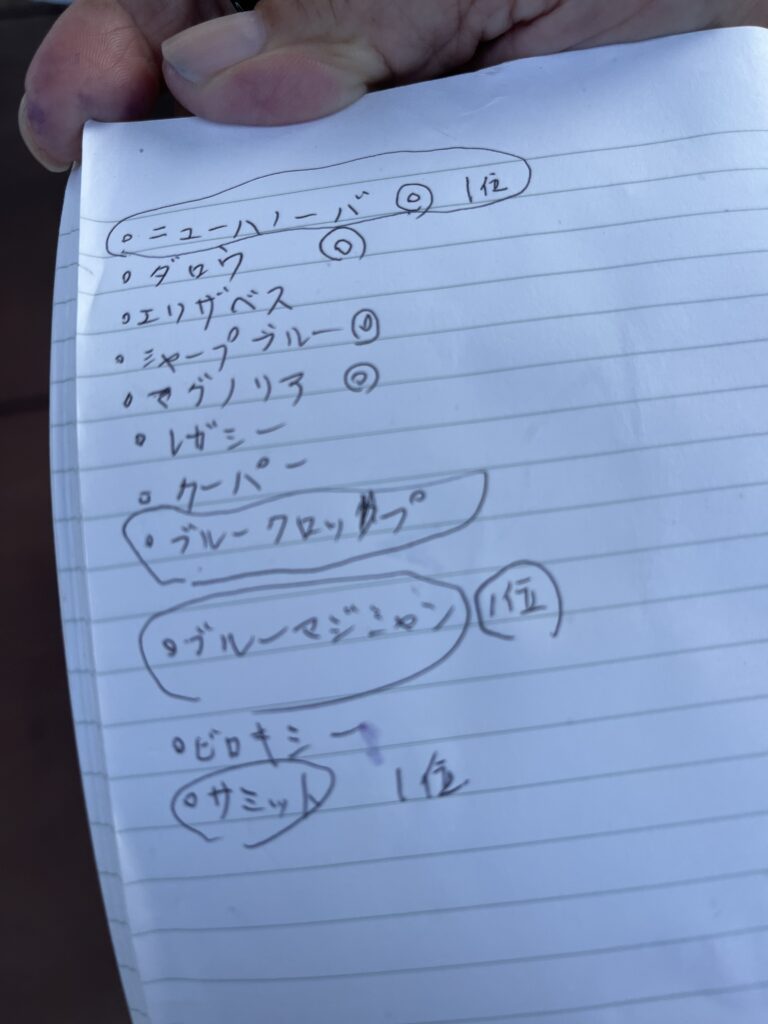 ◦ニューハノーバ ◎ 1位
◦ダロウ ◎
◦エリザベス
◦シャープブルー ◎
◦マグノリア ◎
◦レガシー
◦クーパー
◦ブルークロップ
◦ブルーマジシャン 1位
◦ビロキシー
◦サミット 1位